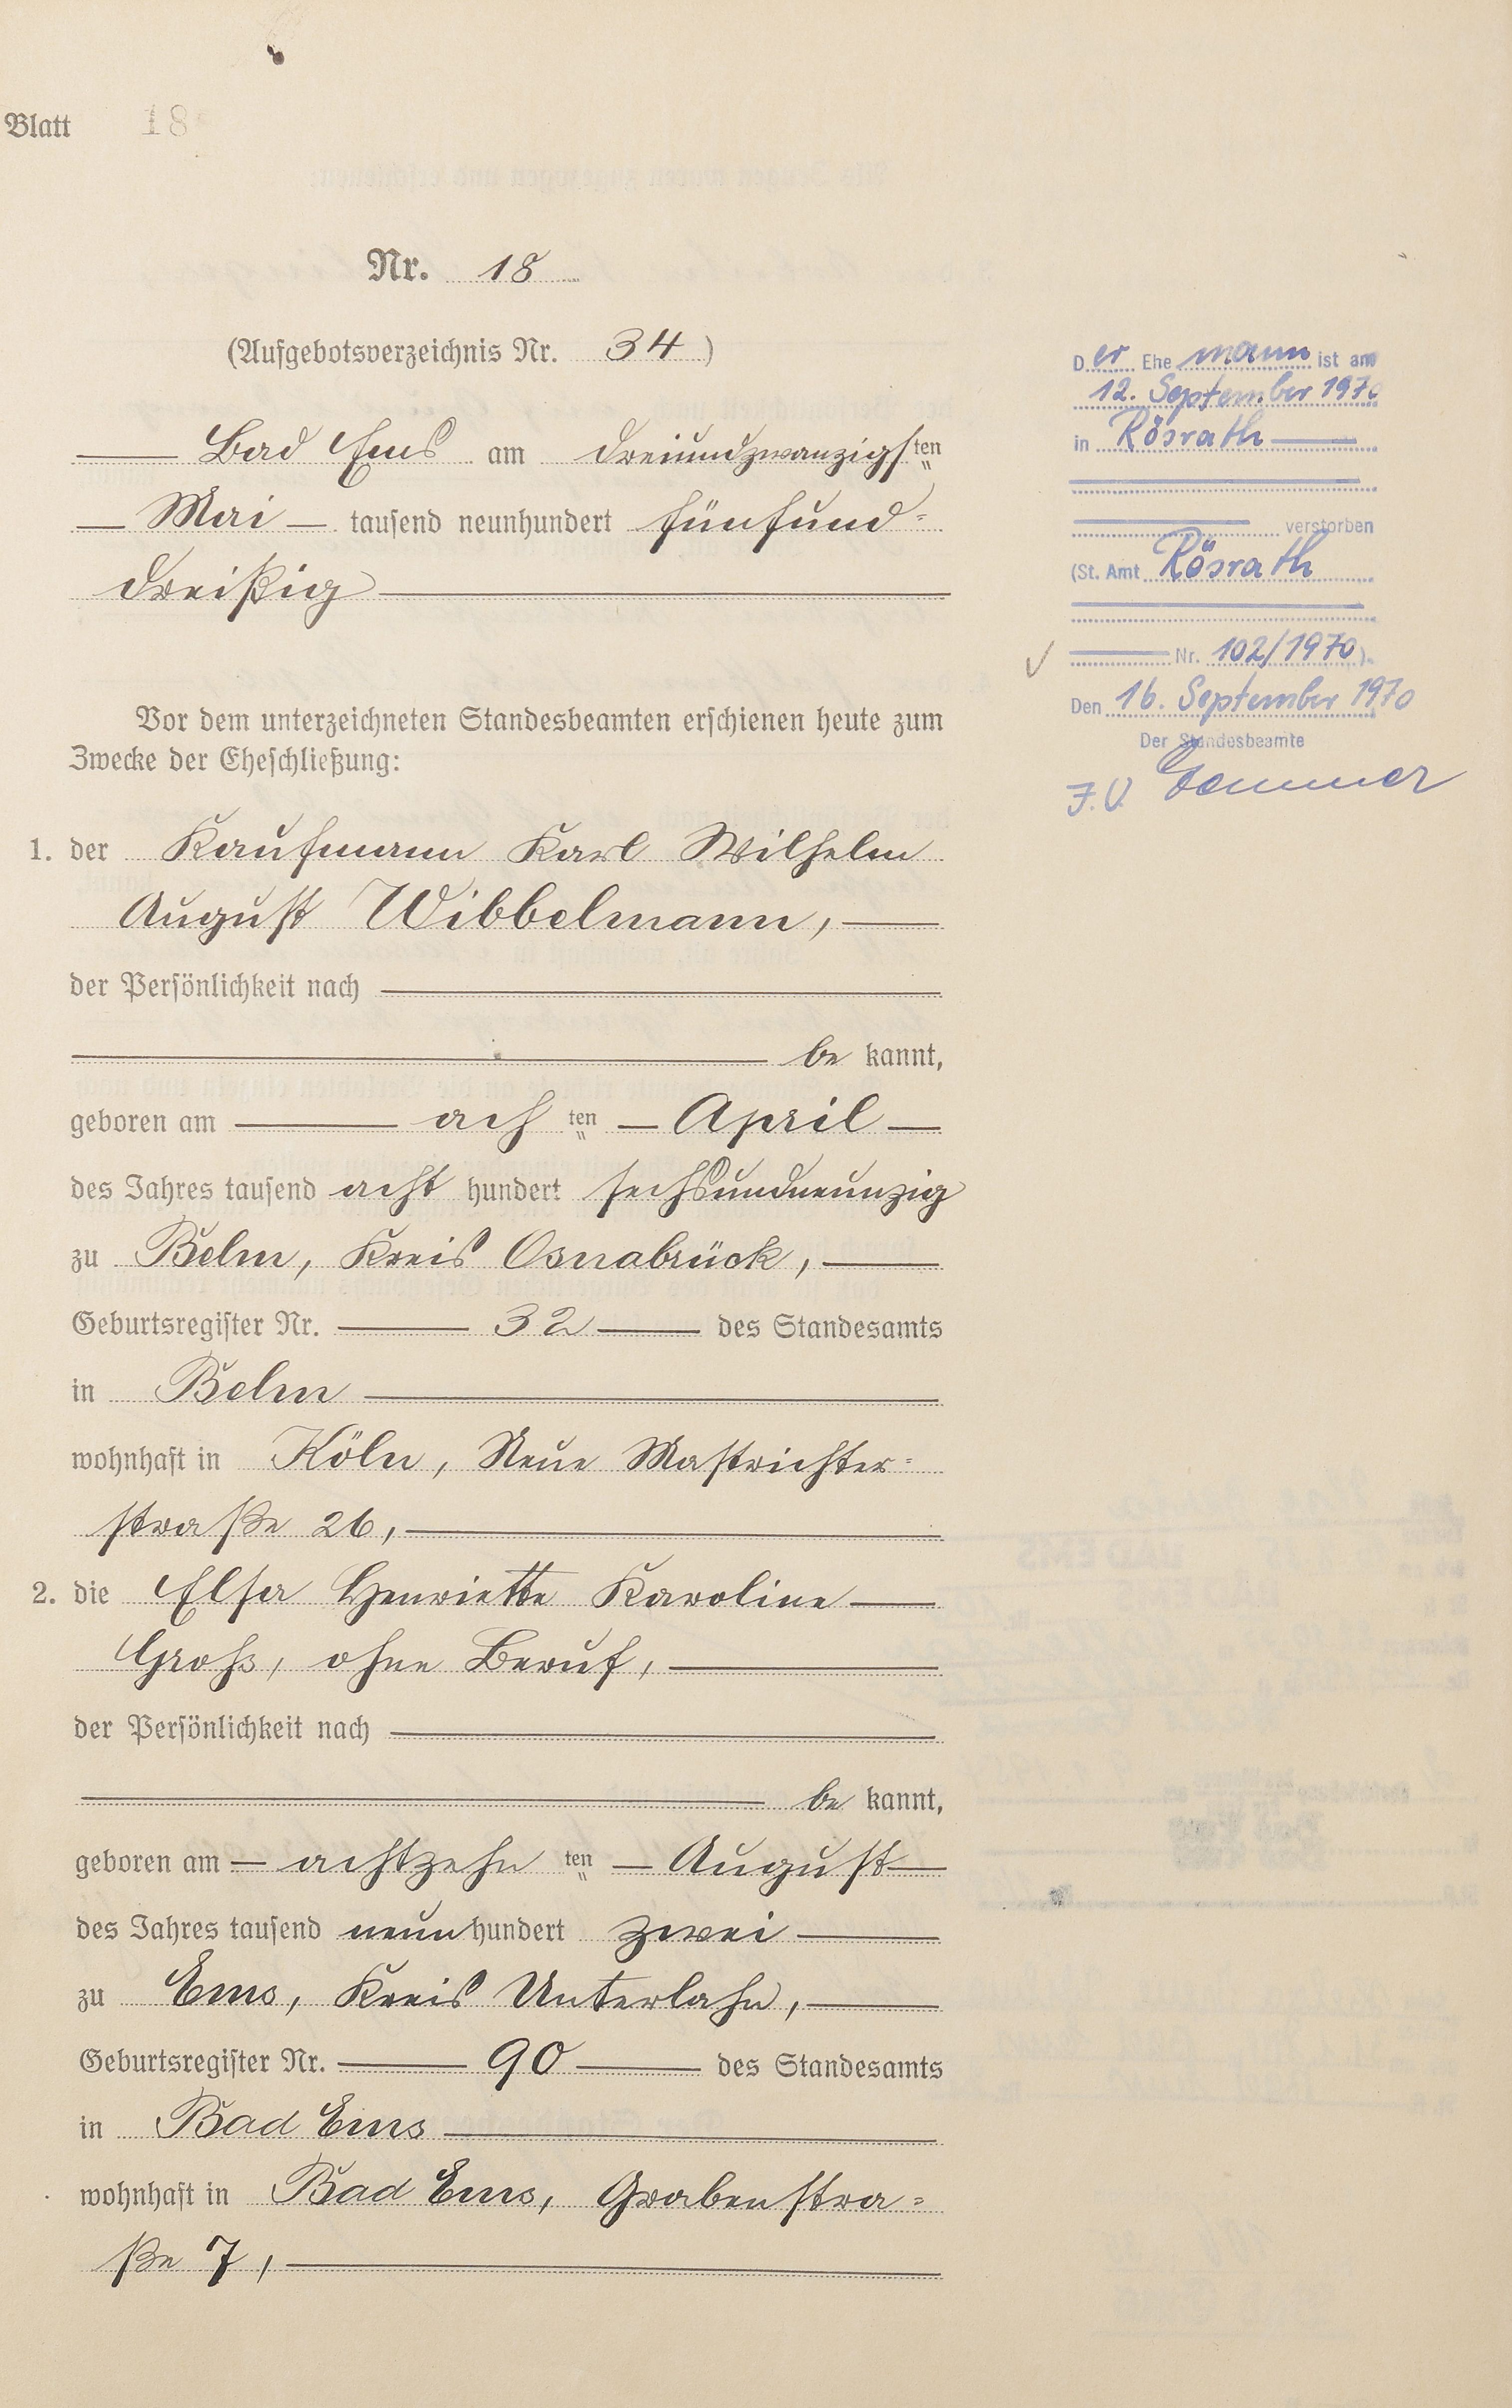 Blatt 18
Nr. 18
(Aufgebotsverzeichnis Nr. 34)
Bad Ems am dreiundzwanzigsten
Mai tausend neunhundert fünfund-
dreißig
Vor dem unterzeichneten Standesbeamten erschienen heute zum
Zwecke der Eheschließung:
1. der Kaufmann Karl Wilhelm
August Wibbelmann,
der Persönlichkeit nach
be kannt,
geboren am ach ten April
des Jahres tausend acht hundert sechsundneunzig
zu Belm, Kreis Osnabrück,
Geburtsregister Nr. 32 des Standesamts
in Belm
wohnhaft in Köln, Neue Mastrichter-
straße 26,
2. die Elsa Henriette Karoline
Groß, ohne Beruf,
der Persönlichkeit nach
be kannt,
geboren am achtzehn ten August
des Jahres tausend neun hundert zwei
zu Ems, Kreis Unterlahn,
Geburtsregister Nr. 90 des Standesamts
in Bad Ems
wohnhaft in Bad Ems, Grabenstra-
ße 7,
Der Ehemann ist am
12. September 1970
in Rösrath
verstorben
(St. Amt Rösrath
Nr. 102/1970).
Den 16. September 1970
Der Standesbeamte
J.V.